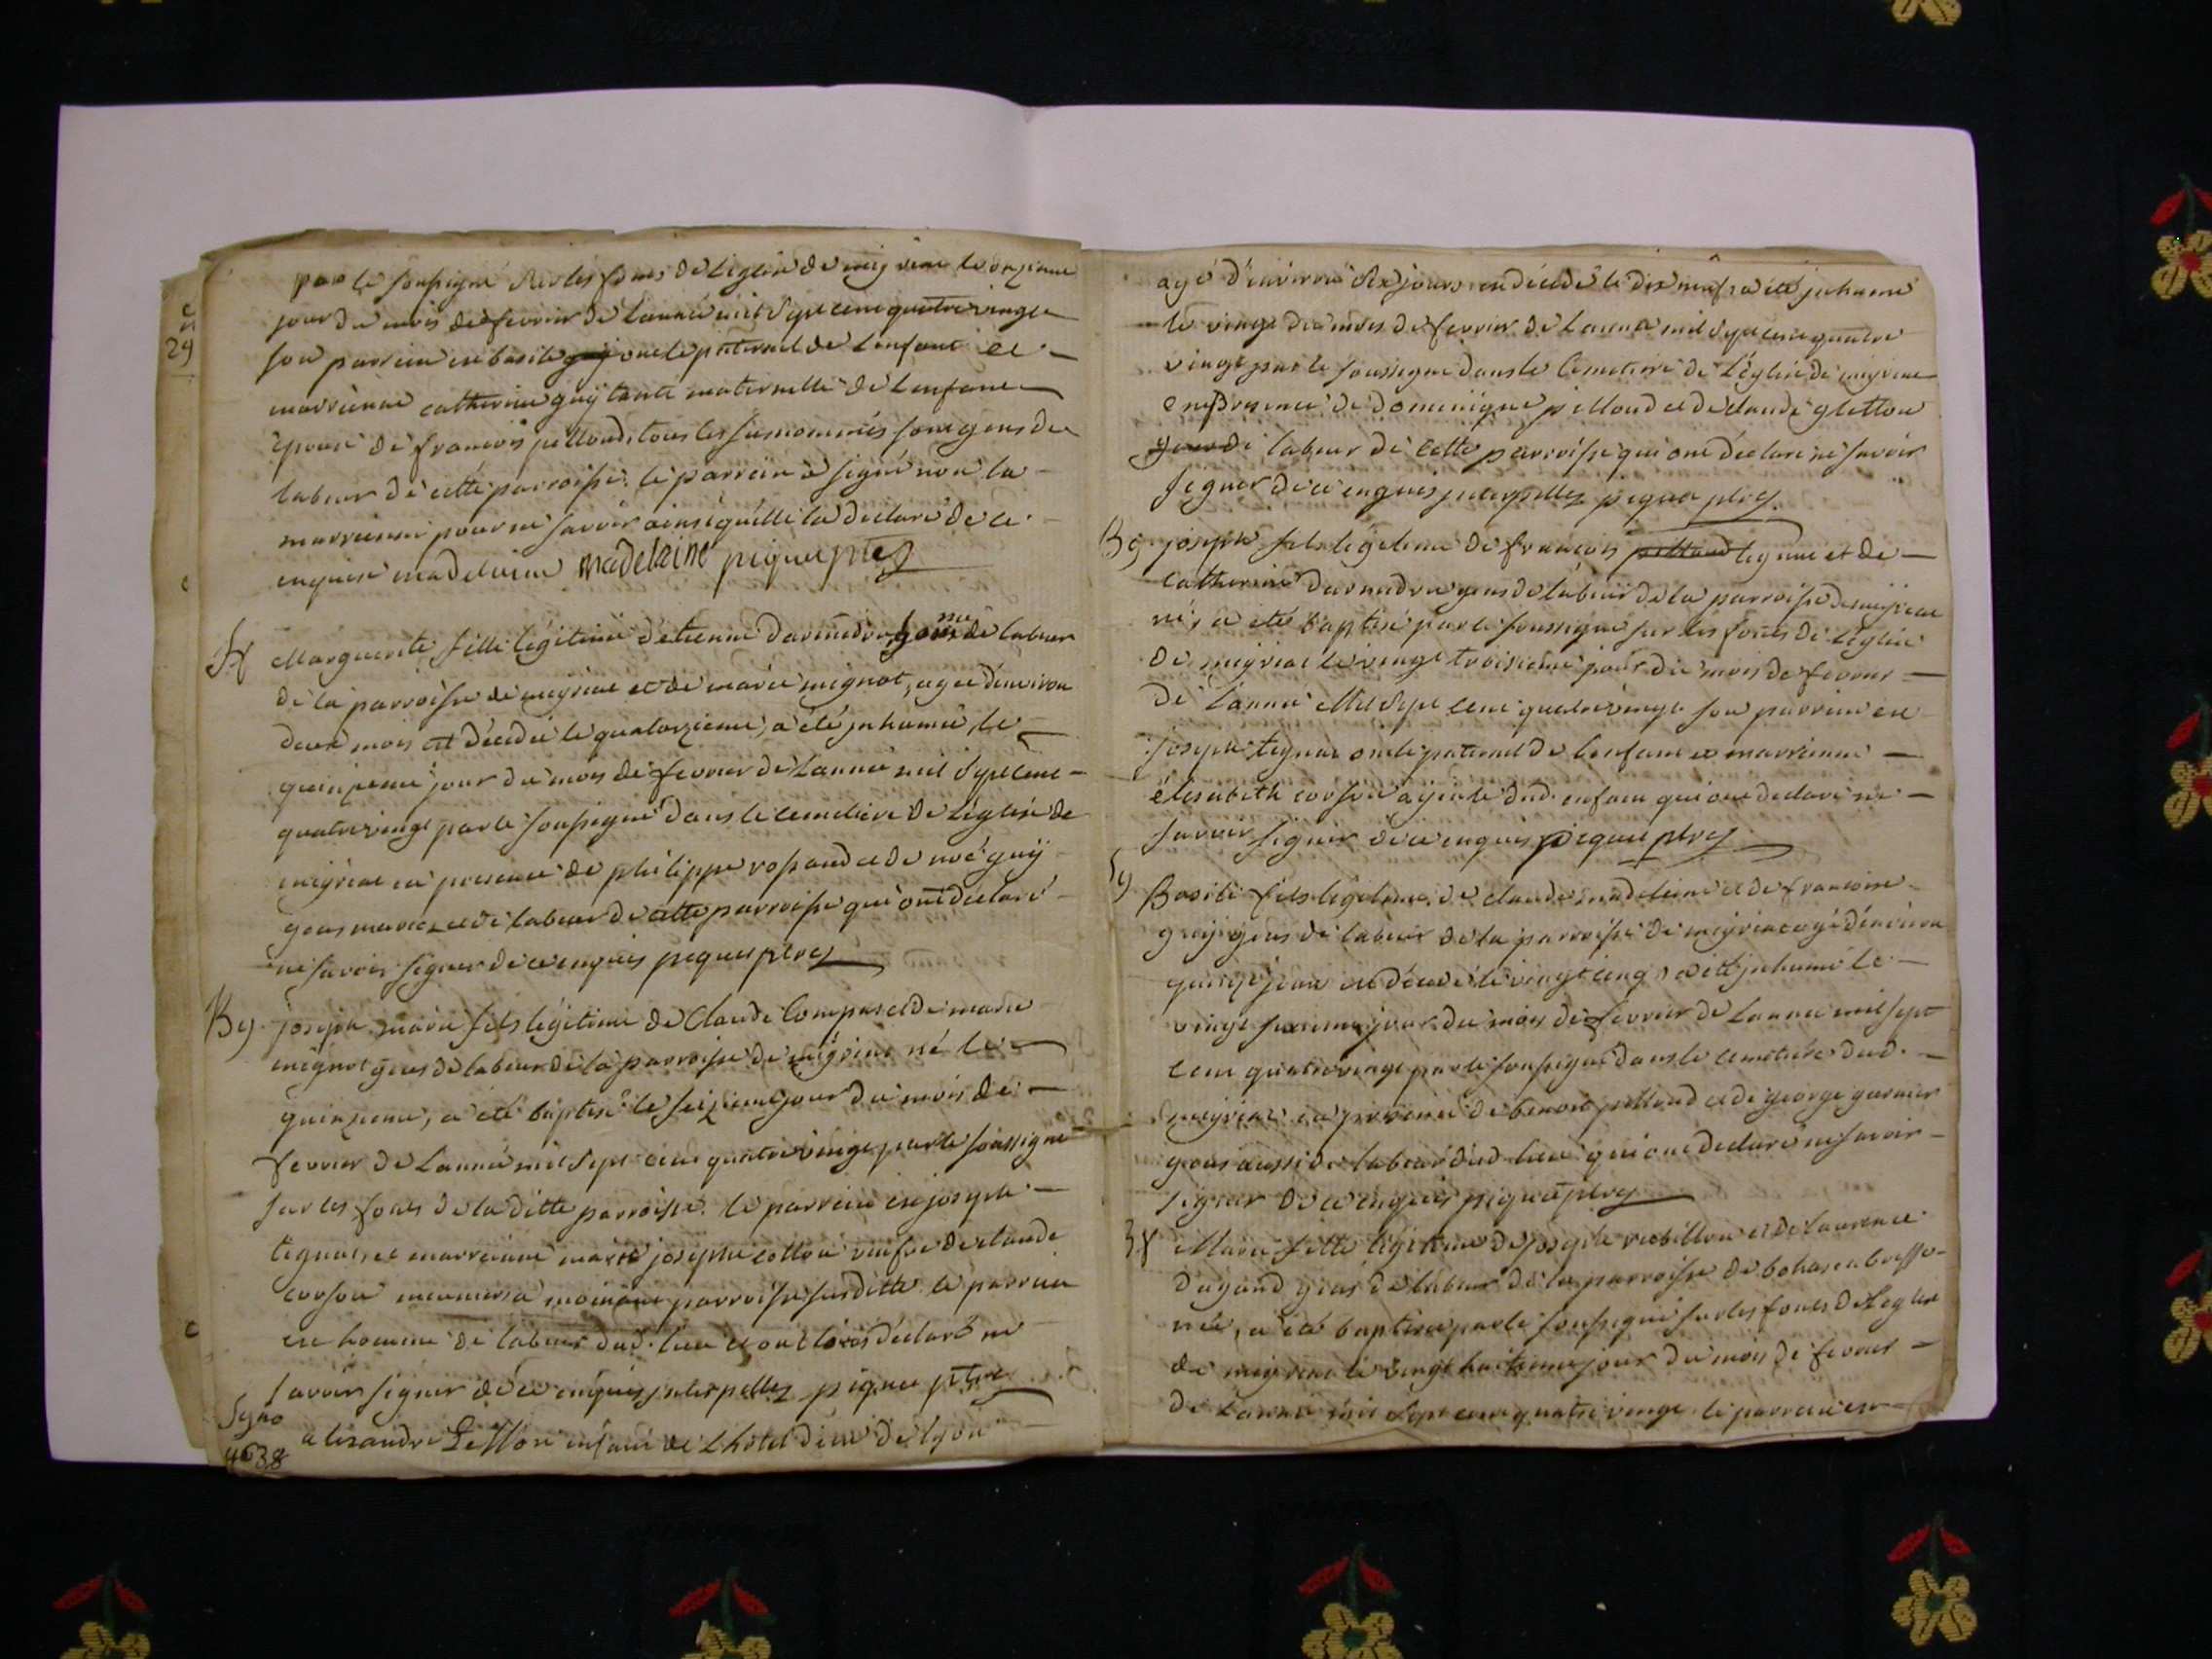 par le soussigné sur les fonts de l'église de meyriat le onzieme
jour du mois de fevrier de l'année mil sept cent quatre vingt
son parrein est basile guÿ oncle paternel de l'enfant et
marreinne catherine guÿ tante maternelle de l'enfant
épouse de francois pelloud, tous les susnommés sont gens de
labeur de cette parroisse. le parrein a signé non la
marreinne pour ne savoir ainsi qu'elle l'a déclaré de ce
enquise madeleine madelaine piquet ptre
Marguerite fille légitime d'etienne darmedru gens de labeur
de la parroisse de meyriat et de marie mignot, agée d'environ
deux mois est décédée le quatorzieme, a été inhumée le
quinzieme jour du mois de fevrier de l'année mil sept cent
quatre vingt par le soussigné dans le cemetiere de l'église de
meyriat en presence de philippe rossand et de noé guÿ
gens mariés et de labeur de cette parroisse qui ont déclaré
ne savoir signer de ce enquis piquet ptre
29
Bg. joseph marie fils légitime de Claude Compas et de marie
mignot gens de labeur de la parroisse de meyriat né le
quinzieme, a été baptisé le seizieme jour du mois de
fevrier de l'année mil sept cent quatre vingt par le soussigné
sur les fonts de la ditte parroisse. le parrein est joseph
tignat, et marreinne marie josephe cotton veufve de claude
corson parroisse susditte le parrein
est homme de labeur dud. lieu et ont tous déclaré ne
savoir signer de ce enquis interpellez piquet ptre
Sg
4638
alexandre enfant de L'hotel dieu de lyon
agé d'environ dix jours est décédé le dix neuf, a été inhumé
le vingt du mois de fevrier de l'année mil sept cent quatre
vingt par le soussigné dans le Cemetiere de l'église de meyriat
en presence de dominique pelloud et de claude gletton
gens de labeur de cette parroisse qui ont déclaré ne savoir
signer de ce enquis interpellez piquet ptre
Bg. joseph fils légitime de francois pelloud tignat et de
catherine darmedru gens de labeur de la parroisse de meyriat
né, a été baptisé par le soussigné sur les fonts de l'église
de meyriat le vingt troisieme jour du mois de fevrier
de l'année Mil Sept cent quatre vingt son parrein est
joseph tignat oncle paternel de l'enfant et marreinne
élisabeth corson ayeule dud. enfant qui ont déclaré ne
savoir signer de ce enquis piquet ptre
Sg
Basile fils légitime de claude madeleine et de francoise
guÿ gens de labeur de la parroisse de meyriat agé d'environ
quinze jours est décédé le vingt cinq, a été inhumé le
vingt sixieme jour du mois de fevrier de l'année mil sept
cent quatre vingt par le soussigné dans le cemetiere dud.
meyriat en presence de benoit pelloud et de george garnier
gens aussi de labeur dud. lieu qui ont declaré ne savoir
signer de ce enquis piquet ptre
Bf Marie fille légitime de joseph rebillon et de laurence
dugand gens de labeur de la parroisse de bohas en bresse
née, a été baptisée par le soussigné sur les fonts de l'eglise
de meyriat le vingt huitieme jour du mois de fevrier
de l'année mil sept cent quatre vingt le parrein est